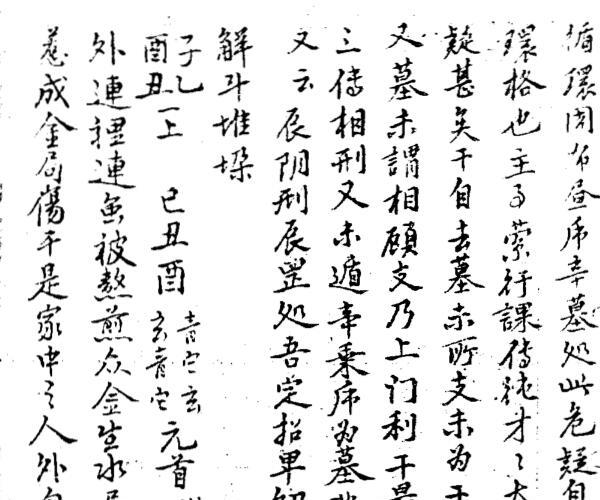 循環周而昼虎辛墓处此危疑自
環格也主事萦行課傳純才才太
疑甚矣干自去墓未所支未为干
又墓未謂相顾支乃上门利干是
三傳相刑又未遁辛乘虎为墓
又云辰阴刑辰罡处吾定招单
解斗堆垛
子乙
酉丑一上 巳丑酉 青六玄
玄青六 元首
外連裡連무被熬煎众金生水
惹成金局傷干是家中之人外